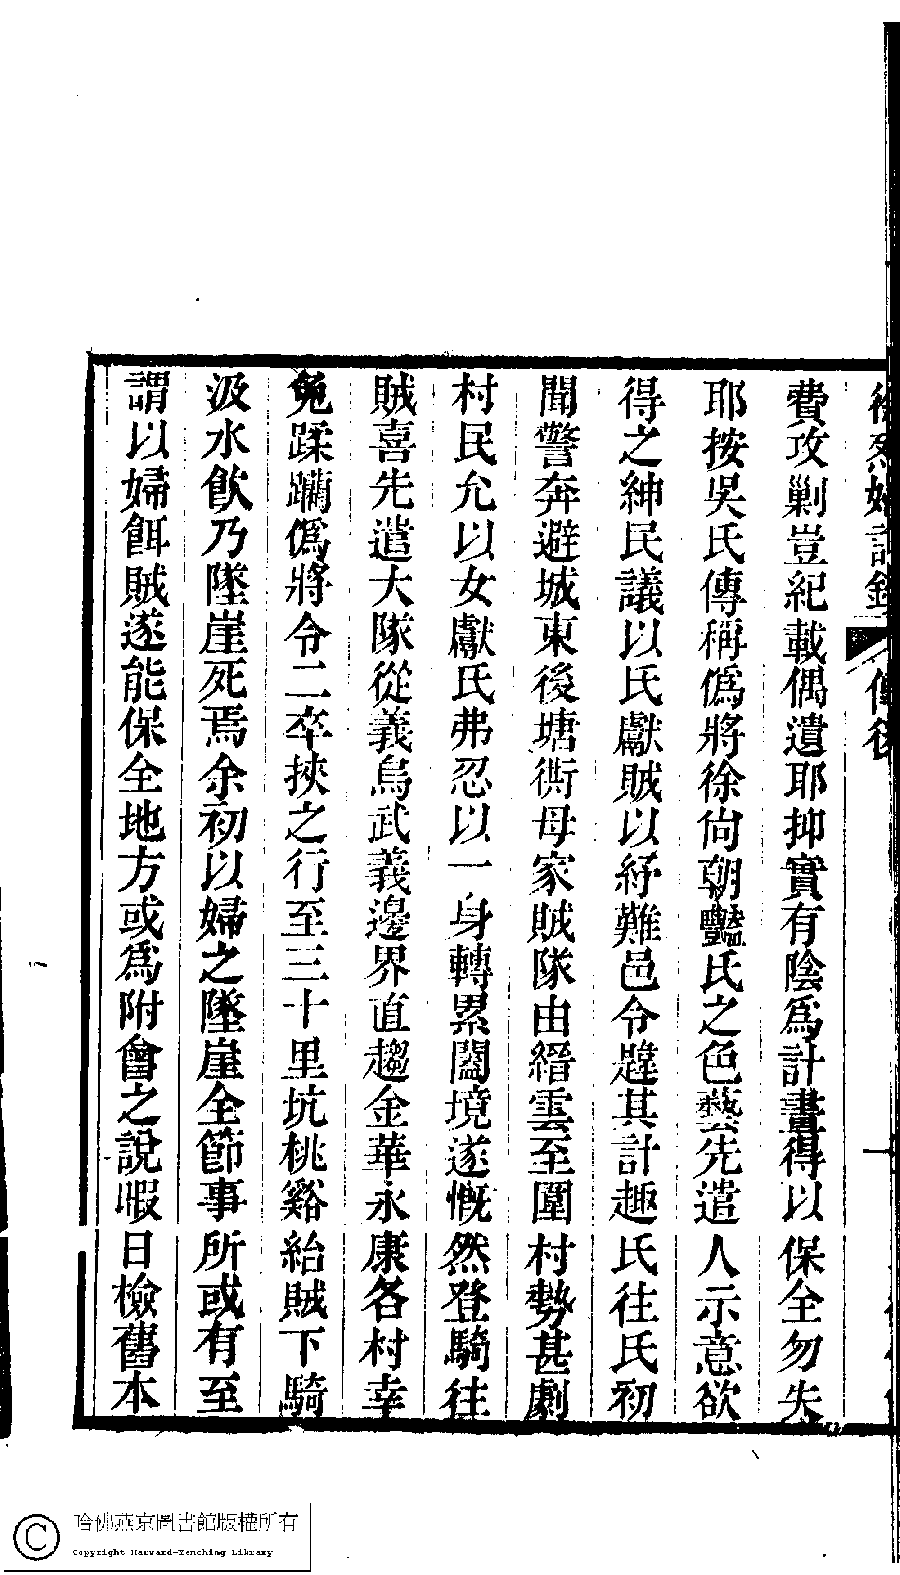 費攻剿豈紀載偶遺耶抑實有陰爲計畫得以保全勿失
耶按吳氏傳稱僞將徐尙朝豔氏之色藝先遣人示意欲
得之紳民議以氏獻賊以紓難邑令韙其計趣氏往氏初
聞警奔避城東後塘衖母家賊隊由縉雲至圍村勢甚劇
村民允以女獻氏弗忍以一身轉累闔境遂慨然登騎往
賊喜先遣大隊從義烏武義邊界直趨金華永康各村幸
免蹂躪僞將令二卒挾之行至三十里坑桃谿紿賊下騎
汲水飮乃墜崖死焉余初以婦之墜崖全節事所或有至
謂以婦餌賊遂能保全地方或爲附會之說暇日檢舊本
哈佛燕京圖書館版權所有
Copyright Harvard-Yenching Library